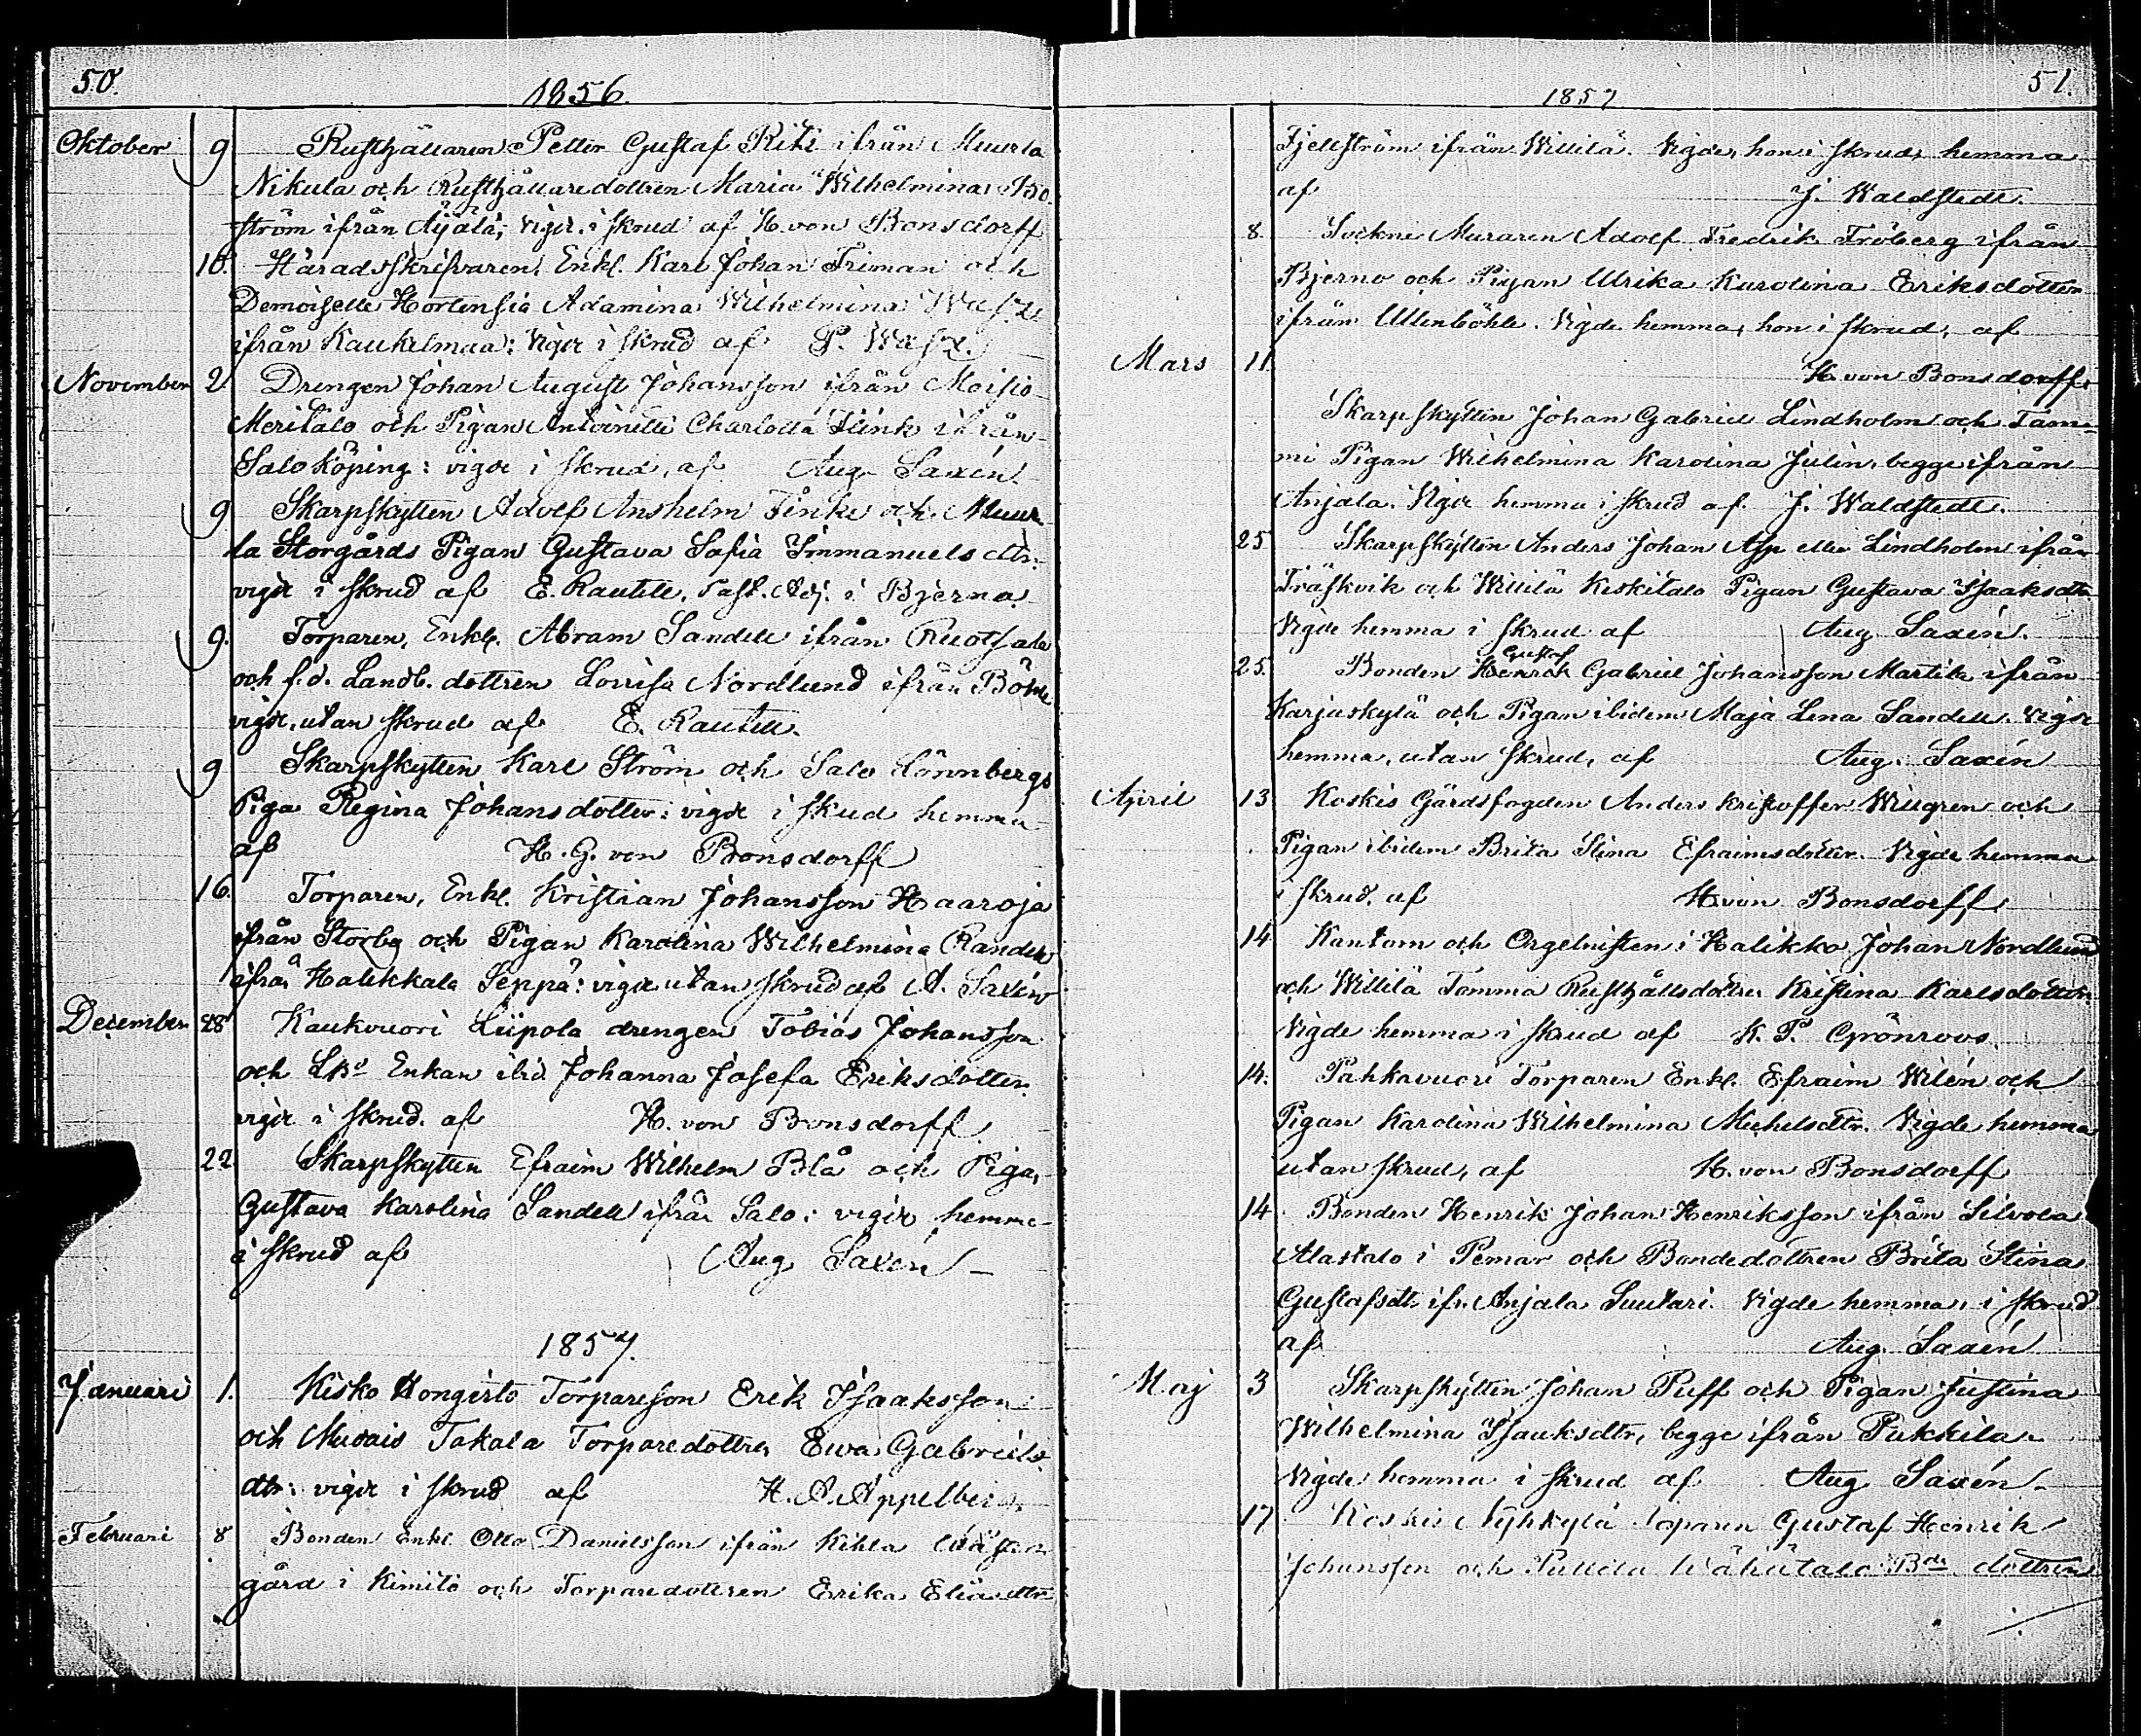 50.
1856.
Oktober 9 Rusthållaren Petter Gustaf Riti ifrån Muurla
Nikula och Rusthållaredottren Maria Wilhelmina Bo-
ström ifrån Äijälä; vigde i skrud af H. von Bonsdorff
10. Häradsskrifvaren, Enkl. Karl Johan Triman och
Demoiselle Hortensia Adamina Wilhelmina
ifrån Kaukelmaa: Vigde i skrud af P.
November 2. Drengen Johan August Johansson ifrån Moisio
Meritalo och Pigan Antoinette Charlotta Flink ifrån
Salo Köping: vigde i skrud, af Aug. Saxén
9 Skarpskytten Adolf Anshelm Finke och Muur-
la Storgårds Pigan Gustava Sofia Immanuels dtr.
vigde i skrud af E. Rautell, Past. Adj. i Bjerno
9. Torparen, Enkl. Abram Sandell ifrån Ruotsala
och f.d. Landb. dottren Lovisa Nordlund ifrån Böhle
vigde, utan skrud af E. Rautell.
9 Skarpskytten Karl Ström och Salo Lönnbergs
Piga Regina Johansdotter: vigde i skrud hemma
af H. G. von Bonsdorff
16. Torparen, Enkl. Kristian Johansson Haaroja
ifrån Storby och Pigan Karolina Wilhelmina Randell
ifrån Halikkala Seppä: vigde utan skrud af A. Saxén
December 28 Kaukvuori Liipola drengen Tobias Johansson
och Enkan ibid. Johanna Josefa Eriksdotter
vigde i skrud. af H. von Bonsdorff
22 Skarpskytten Efraim Wilhelm Blå och Pigan
Gustava Karolina Sandell ifrån Salo: vigde hemma
i skrud af Aug. Saxén
1857.
Januari 1. Kisko Hongisto Torpareson Erik Isaaksson
och Muvais Takala Torparedottren Ewa Gabriels
dtr: vigde i skrud af H. A. Appelberg
Februari 8 Bonden Enkl. Otto Danielsson ifrån Kihla
gård i Kimito och Torparedottren Erika Eliasdtr
51.
1857
Fjellström ifrån Willilä. Vigde, hon i skrud, hemma
af J. Waldstedt.
8. Sockne Muraren Adolf Fredrik Fröberg ifrån
Bjerno och Pigan Ulrika Karolina Eriksdotter
ifrån Ullenböhle. Vigde hemma, hon i skrud, af
Mars 11 H. von Bonsdorff.
Skarpskytten Johan Gabriel Lindholm och Tam-
mi Pigan Wilhelmina Karolina Julin, begge ifrån
Anjala. Vigde hemma i skrud af J. Waldstedt.
25 Skarpskytten Anders Johan Asp eller Lindholm ifrån
Träskvik och Willilä Keskitalo Pigan Gustava Isaaksdtr
Vigde hemma i skrud af Aug Saxén.
Gustaf
25. Bonden Henrik Gabriel Johansson Martila ifrån
Karjaskylä och Pigan ibidem Maja Lena Sandell. Vigde
hemma, utan skrud, af Aug. Saxén
April 13 Koskis Gårdsfogden Anders Kristoffer Willgren och
Pigan ibidem Brita Stina Efraimsdotter. Vigde hemma
i skrud, af H. von Bonsdorff.
14 Kantorn och Orgelnisten i Halikko Johan Nordlund
och Willilä Tomma Rusthållsdottren Kristina Karlsdotter.
Vigde hemma i skrud af K. P. Grönroos.
14. Pahkavuori Torparen Enkl. Efraim Wilén och
Pigan Karolina Wilhelmina Michelsdtr. Vigde hemma
utan skrud, af H. von Bonsdorff
14 Bonden Henrik Johan Henriksson ifrån Silvola
Alastalo i Pemar och Bondedottren Brita Stina
Gustafsdtr ifr. Anjala Suutari. Vigde hemma, i skrud
af Aug. Saxén
Maj 3 Skarpskytten Johan Puff och Pigan Justina
Wilhelmina Isaaksdtr, begge ifrån Pukkila.
Vigde hemma i skrud af Aug Saxén.
17 Koskis Nyhkylä Torparen Gustaf Henrik
Johansson och Vähätalo Bde dottren